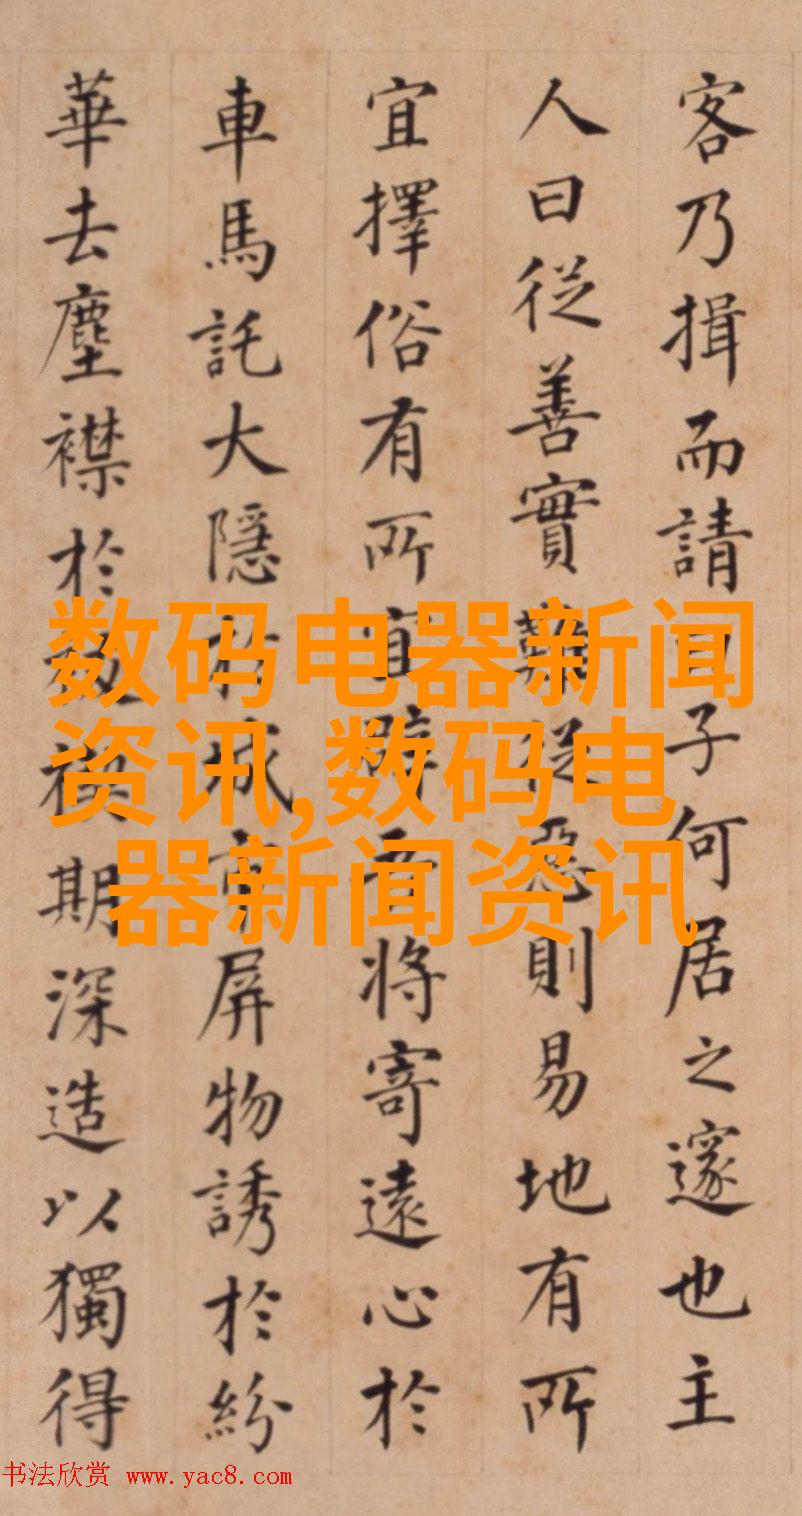 客乃揖而請曰子何居之邃也主
人曰從善實難從惡則易地有所
宜擇俗有所宜辟吾將寄遠心於
車馬託大隱於城市屏物誘於紛
華去塵襟於期深造以獨得
数码电器新闻
资讯,数码电
器新闻资讯
书法欣赏 www.yac8.com